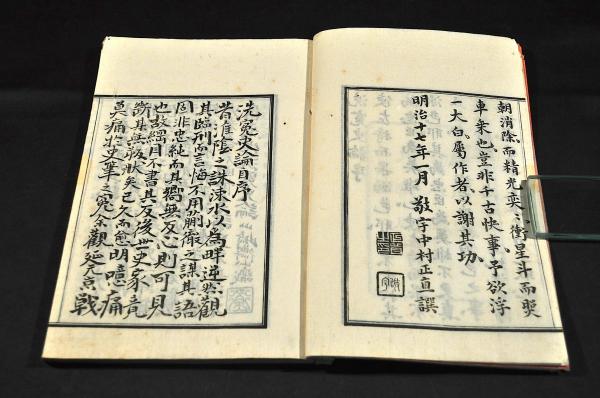 朝消除而精光奕〻衝星斗而㷔
車矣也豈非千古快事予欲浮
一大白屬作者以謝其功
明治十七年一月 敬宇中村正直譔
洗冤史論自序
昔淮陰之誅涑水以為畔逆然觀
其臨刑而言悔不用蒯徹之謀其語
固非也縦而其獨無反心則可見
也故綱目不書其反後世史家竟
斷其無叛狀矣已久而愈明噫痛
莫痛於文華之冤余觀延元戰